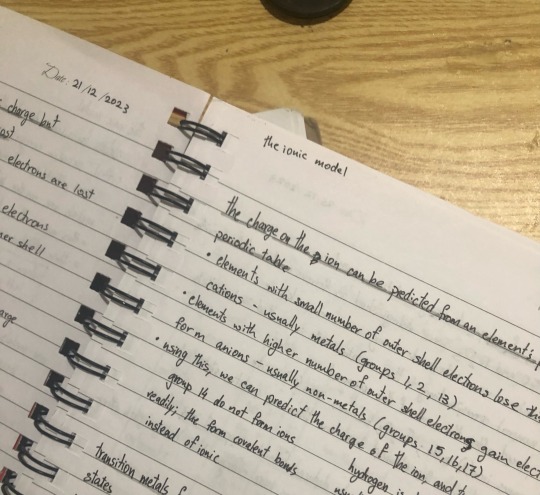 Date: 21/12/2023
charge but
electrons are lost
electrons
shell
the ionic model
the charge on the ion can be predicted from an element's
periodic table
• elements with small number of outer shell electrons lose
cations - usually metals (groups 1, 2, 13)
• elements with higher number of outer shell electrons gain
form anions - usually non-metals (groups 15, 16, 17)
• using this, we can predict the charge of the ion, and
group 14 do not form ions
readily; the form covalent bonds
instead of ionic
hydrogen
transition metals
states